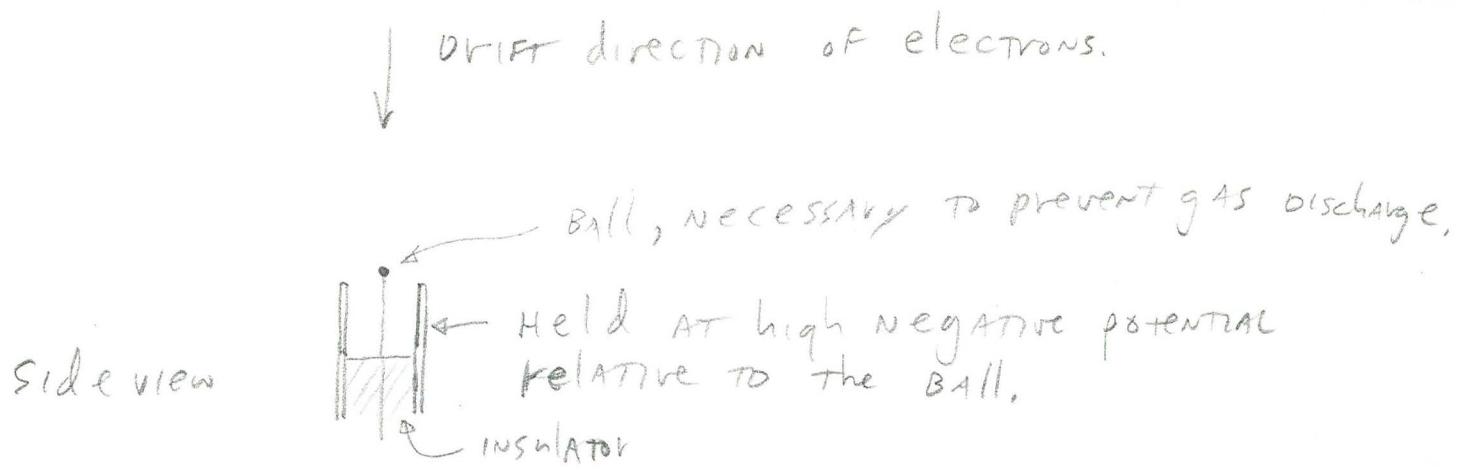 Drift direction of electrons.
Ball, necessary to prevent gas discharge.
Held at high negative potential
Side view
relative to the Ball.
insulator